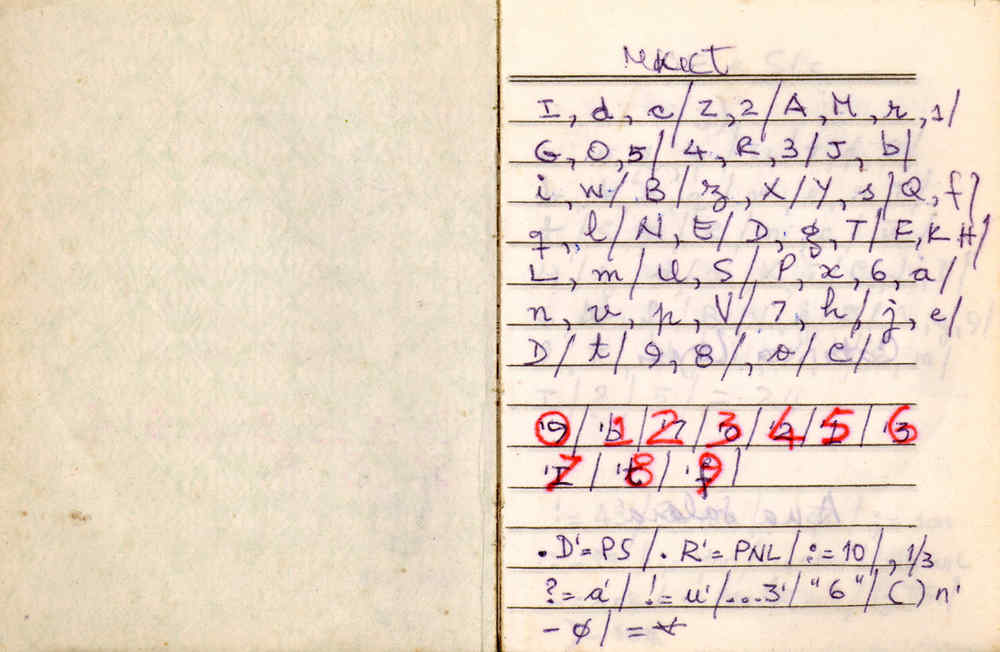 I, d, c / Z, 2 / A, M, r, 1 /
G, O, 5 / 4, R, 3 / J, b /
i, w / B / z, X / Y, s / Q, f /
q, l / N, E / D, g, T / F, K H /
L, m / U, S / P, x, 6, a /
n, v, p, V / 7, h / j, e /
D / t / 9, 8 / , o / C /
0 / 1 2 / 3 / 4 / 5 / 6
7 / 8 / 9 /
. D' = PS / . R' = PNL / : = 10 / , 1/3
? = a' / ! = u' / ... 3' / " 6 " / ( ) n'
- ø / =